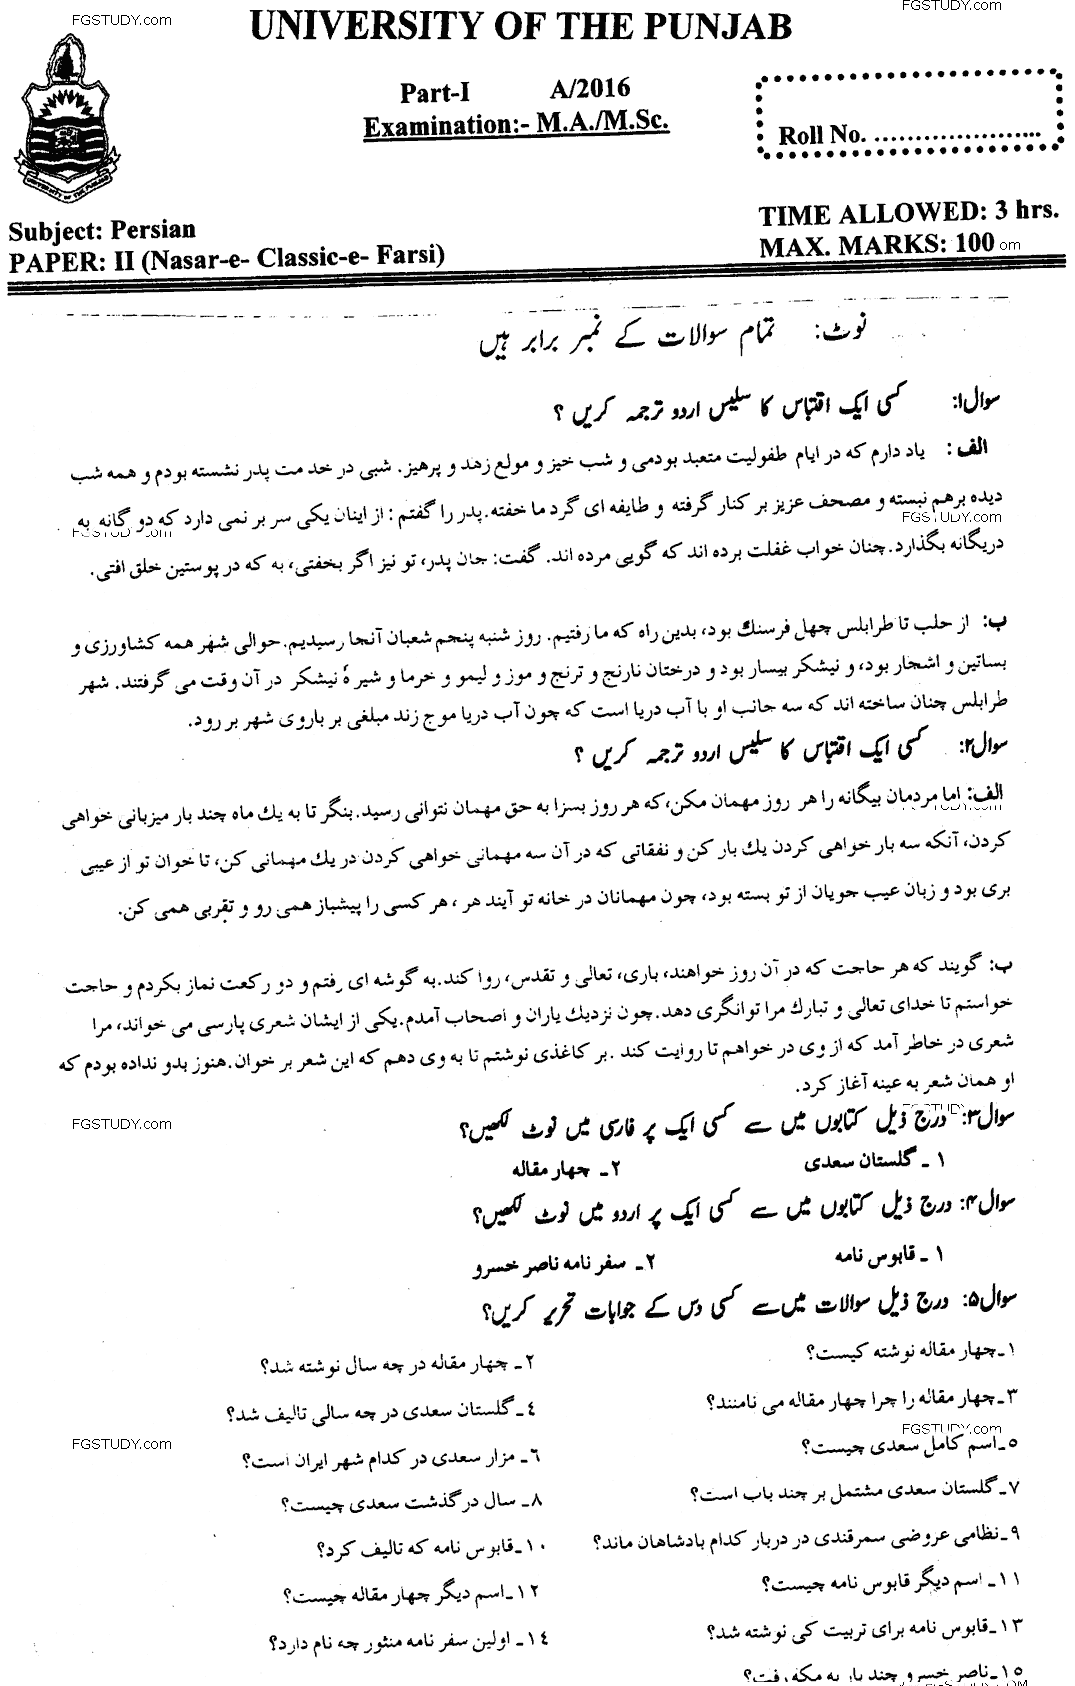 FGSTUDY.com
FGSTUDY.com
UNIVERSITY OF THE PUNJAB
Part-I A/2016
Examination:- M.A./M.Sc.
Roll No. ........................
UNIVERSITY OF THE PUNJAB
Subject: Persian
TIME ALLOWED: 3 hrs.
PAPER: II (Nasar-e- Classic-e- Farsi)
MAX. MARKS: 100 om
نوٹ: تمام سوالات کے نمبر برابر ہیں
سوال۱: کسی ایک اقتباس کا سلیس اردو ترجمہ کریں ؟
الف : یاد دارم که در ایام طفولیت متعبد بودمی و شب خیز و مولع زهد و پرهیز. شبی در خدمت پدر نشسته بودم و همه شب
دیده برهم نبسته و مصحف عزیز بر کنار گرفته و طایفه ای گرد ما خفته.پدر را گفتم : از اینان یکی سر بر نمی دارد که دو گانه به
FGSTUDY.com
FGSTUDY.com
دریگانه بگذارد.چنان خواب غفلت برده اند که گویی مرده اند. گفت: جان پدر، تو نیز اگر بخفتی، به که در پوستین خلق افتی.
ب: از حلب تا طرابلس چهل فرسنك بود، بدین راه که ما رفتیم. روز شنبه پنجم شعبان آنجا رسیدیم.حوالی شهر همه کشاورزی و
بساتین و اشجار بود، و نیشکر بیسار بود و درختان نارنج و ترنج و موز و لیمو و خرما و شیرهٔ نیشکر در آن وقت می گرفتند. شهر
طرابلس چنان ساخته اند که سه جانب او با آب دریا است که چون آب دریا موج زند مبلغی بر باروی شهر بر رود.
سوال۲: کسی ایک اقتباس کا سلیس اردو ترجمہ کریں ؟
الف: اما مردمان بیگانه را هر روز مهمان مکن،که هر روز بسزا به حق مهمان نتوانی رسید.بنگر تا به یك ماه چند بار میزبانی خواهی
کردن، آنکه سه بار خواهی کردن یك بار کن و نفقاتی که در آن سه مهمانی خواهی کردن در یك مهمانی کن، تا خوان تو از عیبی
بری بود و زبان عیب جویان از تو بسته بود، چون مهمانان در خانه تو آیند هر ، هر کسی را پیشباز همی رو و تقربی همی کن.
ب: گویند که هر حاجت که در آن روز خواهند، باری، تعالی و تقدس، روا کند.به گوشه ای رفتم و دو رکعت نماز بکردم و حاجت
خواستم تا خدای تعالی و تبارك مرا توانگری دهد.چون نزدیك یاران و اصحاب آمدم.یکی از ایشان شعری پارسی می خواند، مرا
شعری در خاطر آمد که از وی در خواهم تا روایت کند .بر کاغذی نوشتم تا به وی دهم که این شعر بر خوان.هنوز بدو نداده بودم که
او همان شعر به عینه آغاز کرد.
سوال۳: درج ذیل کتابوں میں سے کسی ایک پر فارسی میں نوٹ لکھیں؟
FGSTUDY.com
۱ ـ گلستان سعدی ۲ـ چهار مقاله
سوال۴: درج ذیل کتابوں میں سے کسی ایک پر اردو میں نوٹ لکھیں؟
۱ ـ قابوس نامه ۲ـ سفر نامه ناصر خسرو
سوال۵: درج ذیل سوالات میں سے کسی دس کے جوابات تحریر کریں؟
۱ـچهار مقاله نوشته کیست؟ ۲ـ چهار مقاله در چه سال نوشته شد؟
۳ـچهار مقاله را چرا چهار مقاله می نامنند؟ ٤ـ گلستان سعدی در چه سالی تالیف شد؟
FGSTUDY.com
FGSTUDY.com
٥ـاسم کامل سعدی چیست؟ ٦ـ مزار سعدی در کدام شهر ایران است؟
۷ـ گلستان سعدی مشتمل بر چند باب است؟ ۸ـ سال درگذشت سعدی چیست؟
۹ـنظامی عروضی سمرقندی در دربار کدام بادشاهان ماند؟ ۱۰ـقابوس نامه که تالیف کرد؟
۱۱ـ اسم دیگر قابوس نامه چیست؟ ۱۲ـاسم دیگر چهار مقاله چیست؟
۱۳ـقابوس نامه برای تربیت کی نوشته شد؟ ۱٤ـ اولین سفر نامه منثور چه نام دارد؟
۱٥ـناصر خسرو چند بار به مکه رفت؟